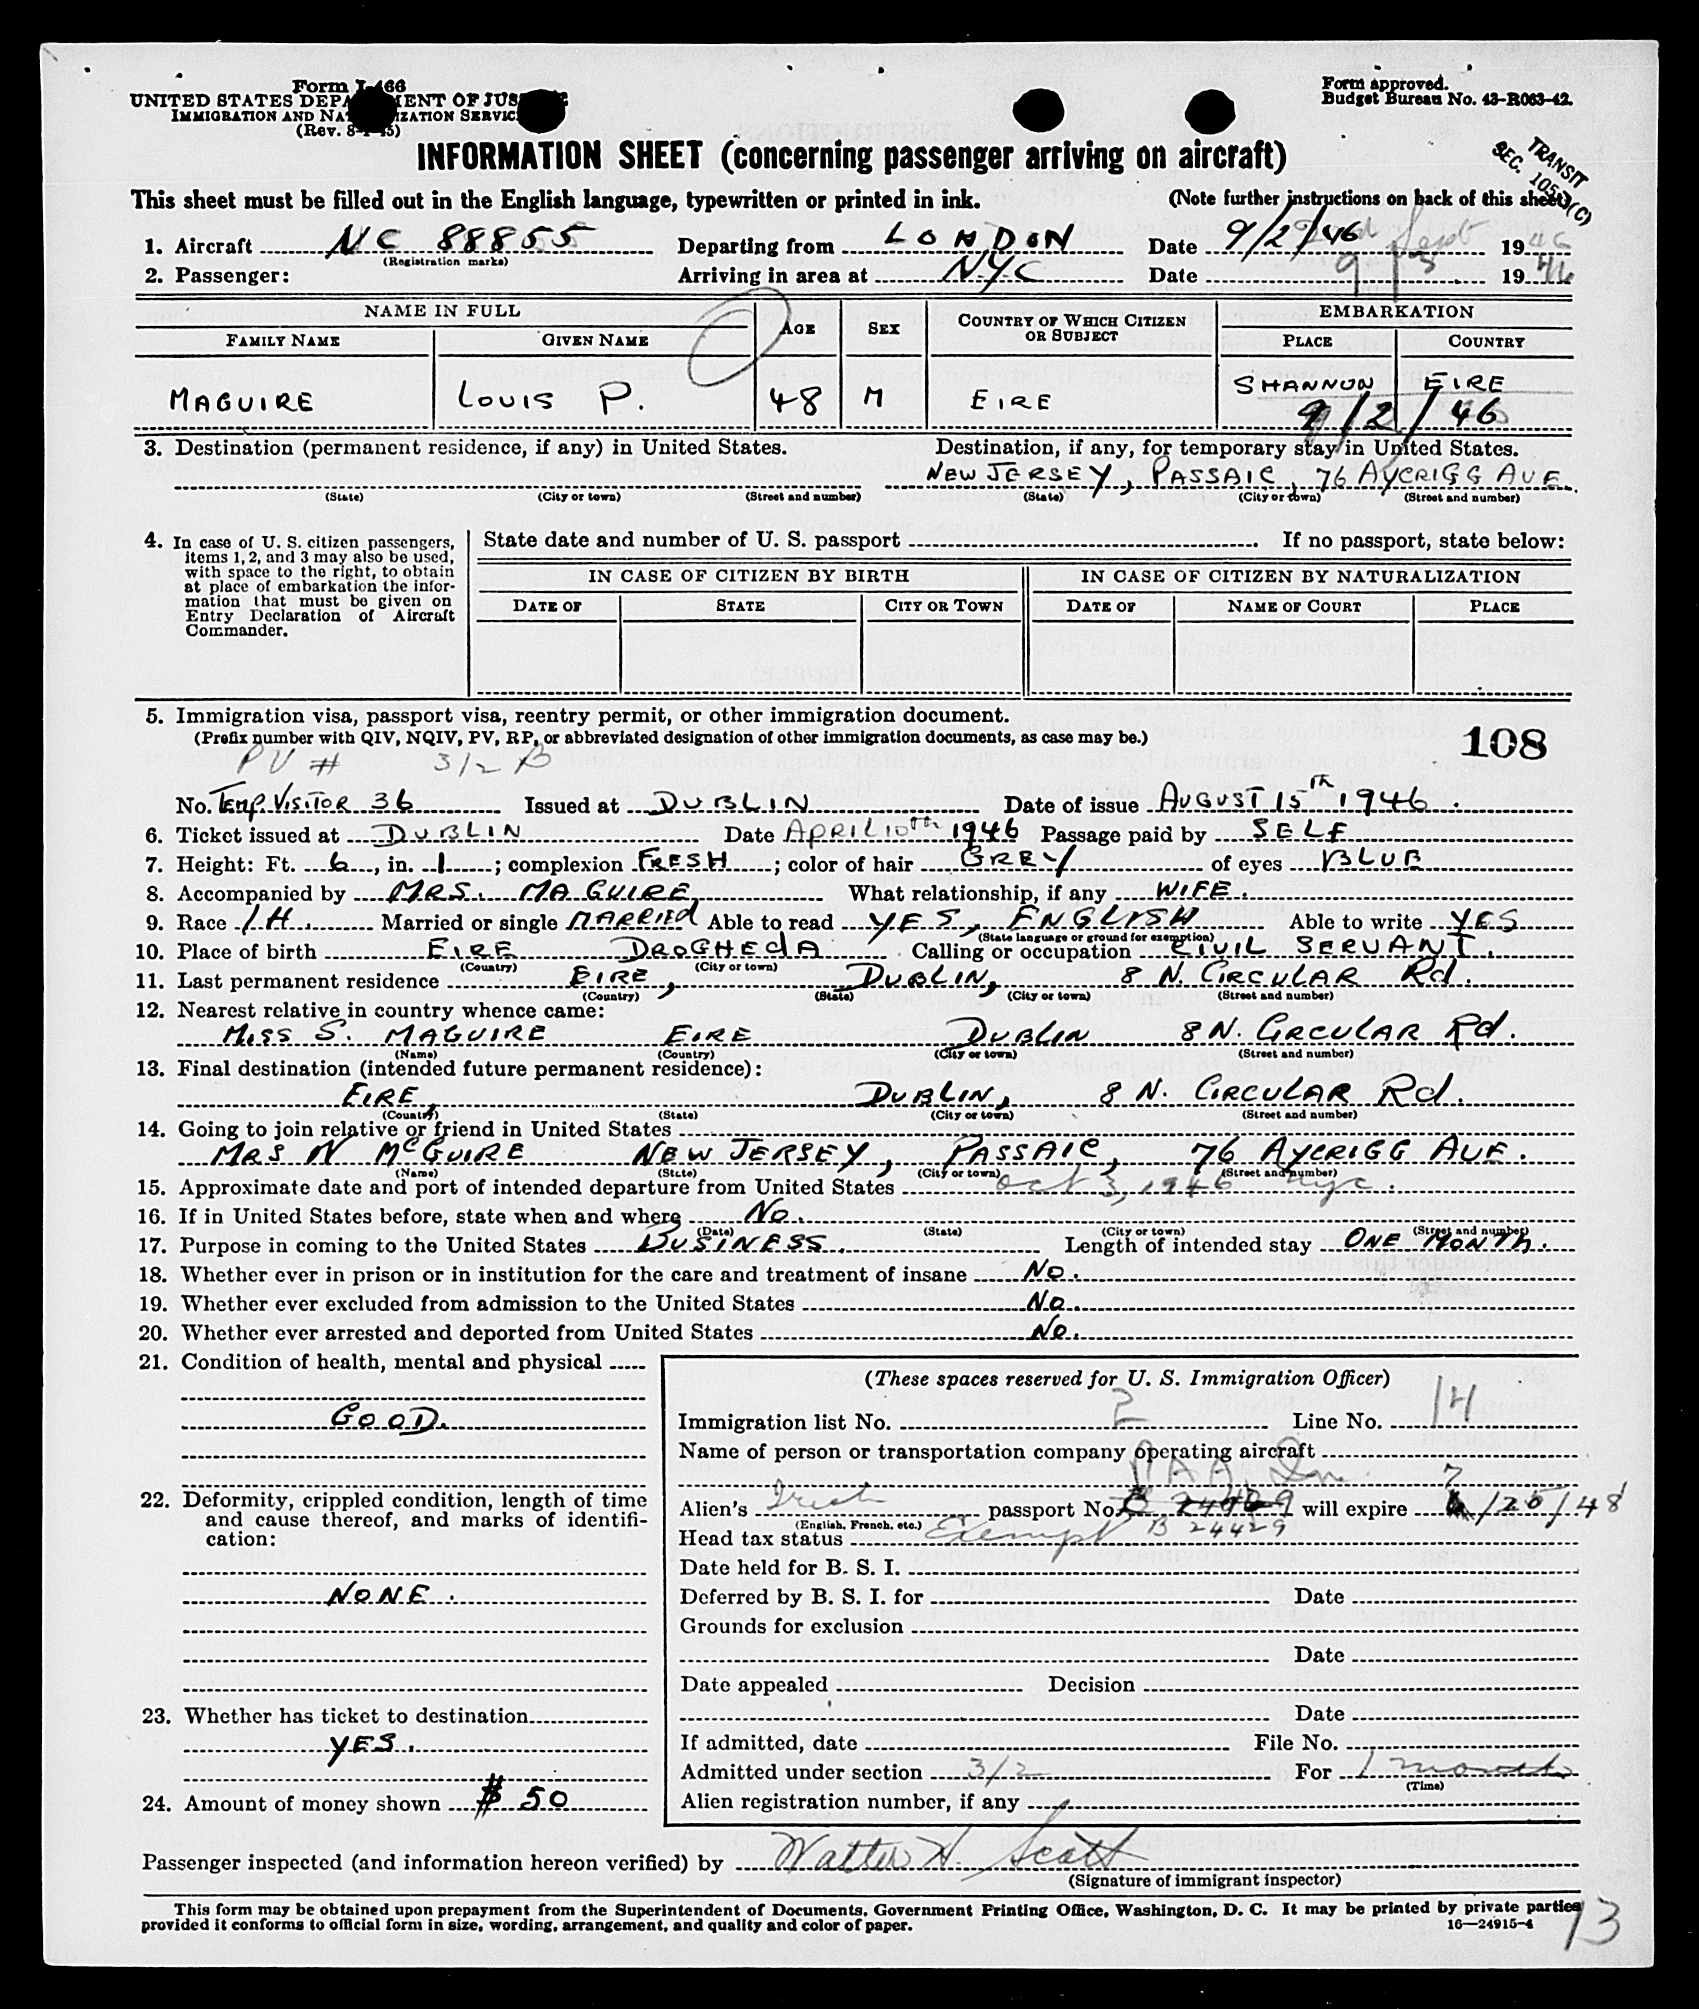 Form I-466
UNITED STATES DEPARTMENT OF JUSTICE
IMMIGRATION AND NATURALIZATION SERVICE
(Rev. 8-1-45)
Form approved.
Budget Bureau No. 43-R063-42.
INFORMATION SHEET (concerning passenger arriving on aircraft)
TRANSIT
SEC. 105 3(C)
This sheet must be filled out in the English language, typewritten or printed in ink. (Note further instructions on back of this sheet)
1. Aircraft NC 88855 Departing from LONDON Date 9/2/46 2nd Sept 1946
(Registration marks)
2. Passenger: Arriving in area at NYC Date 9/3 1946
NAME IN FULL AGE SEX COUNTRY OF WHICH CITIZEN OR SUBJECT EMBARKATION
FAMILY NAME GIVEN NAME PLACE COUNTRY
MAGUIRE LOUIS P. 48 M EIRE SHANNON EIRE
9/2/46
3. Destination (permanent residence, if any) in United States. Destination, if any, for temporary stay in United States.
NEW JERSEY, PASSAIC, 76 AYCRIGG AVE.
(State) (City or town) (Street and number) (State) (City or town) (Street and number)
4. In case of U. S. citizen passengers, items 1, 2, and 3 may also be used, with space to the right, to obtain at place of embarkation the information that must be given on Entry Declaration of Aircraft Commander.
State date and number of U. S. passport . If no passport, state below:
IN CASE OF CITIZEN BY BIRTH IN CASE OF CITIZEN BY NATURALIZATION
DATE OF STATE CITY OR TOWN DATE OF NAME OF COURT PLACE
5. Immigration visa, passport visa, reentry permit, or other immigration document.
(Prefix number with QIV, NQIV, PV, RP, or abbreviated designation of other immigration documents, as case may be.)
108
PV # 3/2 B
No. TEMP. VISITOR 36 Issued at DUBLIN Date of issue AUGUST 15th 1946.
6. Ticket issued at DUBLIN Date APRIL 10th 1946 Passage paid by SELF
7. Height: Ft. 6, in. 1; complexion FRESH; color of hair GREY of eyes BLUE
8. Accompanied by MRS. MAGUIRE, What relationship, if any WIFE.
9. Race IH. Married or single MARRIEd Able to read YES, ENGLISH Able to write YES
(State language or ground for exemption)
10. Place of birth EIRE DROGHEdA Calling or occupation CIVIL SERVANT.
(Country) (City or town)
11. Last permanent residence EIRE, DUBLIN, 8 N. CIRCULAR Rd.
(Country) (State) (City or town) (Street and number)
12. Nearest relative in country whence came:
MISS S. MAGUIRE EIRE DUBLIN 8 N. CIRCULAR Rd.
(Name) (Country) (City or town) (Street and number)
13. Final destination (intended future permanent residence):
EIRE, DUBLIN, 8 N. CIRCULAR Rd.
(Country) (State) (City or town) (Street and number)
14. Going to join relative or friend in United States
MRS N McGUIRE NEW JERSEY, PASSAIC, 76 AYCRIGG AVE.
(Name) (State) (City or town) (Street and number)
15. Approximate date and port of intended departure from United States Oct 3, 1946 nyc.
16. If in United States before, state when and where NO.
(Date) (State) (City or town) (Street and number)
17. Purpose in coming to the United States BUSINESS. Length of intended stay ONE MONTh.
18. Whether ever in prison or in institution for the care and treatment of insane NO.
19. Whether ever excluded from admission to the United States NO.
20. Whether ever arrested and deported from United States NO.
21. Condition of health, mental and physical
GOOD.
22. Deformity, crippled condition, length of time and cause thereof, and marks of identification:
NONE.
23. Whether has ticket to destination
YES.
24. Amount of money shown $ 50
(These spaces reserved for U. S. Immigration Officer)
Immigration list No. 2 Line No. 14
Name of person or transportation company operating aircraft
PAA, Inc.
Alien's Irish passport No. B 24429 will expire 7/25/48
(English, French, etc.)
Head tax status Exempt
Date held for B. S. I.
Deferred by B. S. I. for Date
Grounds for exclusion
Date
Date appealed Decision
Date
If admitted, date File No.
Admitted under section 3/2 For 1 month
(Time)
Alien registration number, if any
Passenger inspected (and information hereon verified) by Walter H. Scott
(Signature of immigrant inspector)
This form may be obtained upon prepayment from the Superintendent of Documents, Government Printing Office, Washington, D. C. It may be printed by private parties
provided it conforms to official form in size, wording, arrangement, and quality and color of paper. 16—24915-4
13